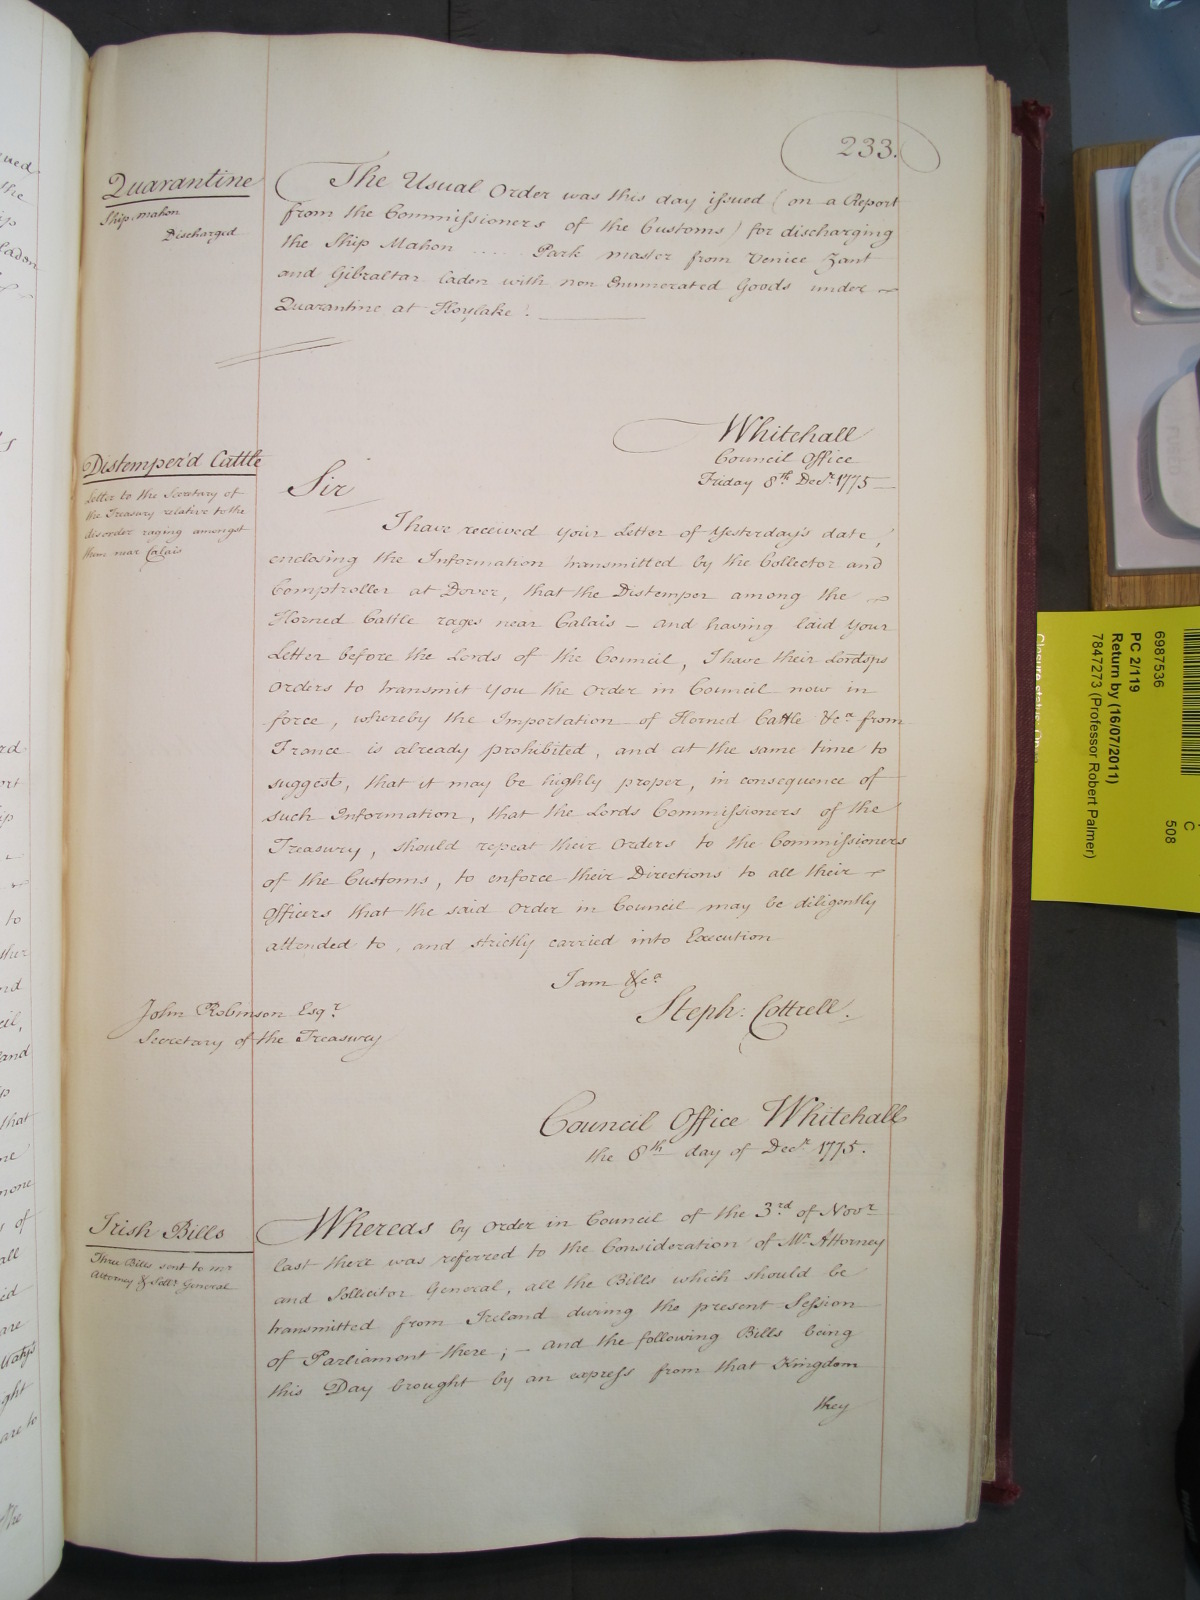 233.
Quarantine
Ship Mahon
Discharged
The Usual Order was this day issued (on a Report
from the Commissioners of the Customs) for discharging
the Ship Mahon .... Park master from Venice Zant
and Gibraltar laden with non Enumerated Goods under
Quarantine at Hoylake.
Whitehall
Council Office
Friday 8th Decr. 1775
Distemper'd Cattle
Letter to the Secretary of
the Treasury relative to the
disorder raging amongst
them near Calais
Sir
I have received your Letter of Yesterday's date,
enclosing the Information transmitted by the Collector and
Comptroller at Dover, that the Distemper among the
Horned Cattle rages near Calais – and having laid your
Letter before the Lords of the Council, I have their Lordsps
Orders to transmit you the Order in Council now in
force, whereby the Importation of Horned Cattle &ca from
France is already prohibited, and at the same time to
suggest, that it may be highly proper, in consequence of
such Information, that the Lords Commissioners of the
Treasury, should repeat their Orders to the Commissioners
of the Customs, to enforce their Directions to all their
Officers that the said Order in Council may be diligently
attended to, and strictly carried into Execution
I am &ca
Steph: Cottrell.
John Robinson Esqr.
Secretary of the Treasury
Council Office Whitehall
the 8th day of Decr. 1775.
Irish Bills
Three Bills sent to Mr
Attorney & Sollr General
Whereas by Order in Council of the 3rd of Novr
last there was referred to the Consideration of Mr. Attorney
and Sollicitor General, all the Bills which should be
transmitted from Ireland during the present Session
of Parliament there; – and the following Bills being
this Day brought by an express from that Kingdom
they
6987536
PC 2/119
Return by (16/07/2011)
7847273 (Professor Robert Palmer)
C
508